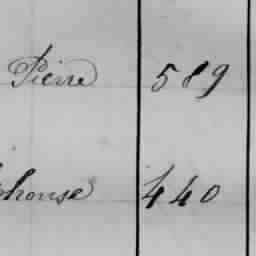 Pierre 589
phonse 440